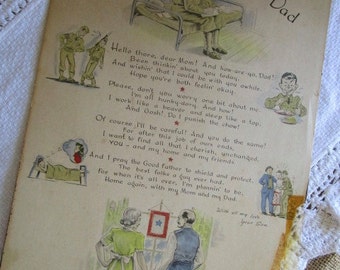 Dad
Hello there, dear Mom! And how are you Dad?
Been thinkin' about you today,
And wishin' that I could be with you awhile.
Hope you're both feelin' okay.
Please, don't you worry one bit about me,
I'm all hunky-dory. And how!
I work like a beaver and sleep like a top,
And Gosh! Do I punish the chow!
Of course I'll be careful! And you do the same!
For after this job of ours ends,
I want to find all that I cherish, unchanged,
YOU - and my home and my friends.
And I pray the Good Father to shield and protect
The best folks a guy ever had.
For when it's all over, I'm plannin' to be
Home again, with my Mom and my Dad.
With all my love
Your Son